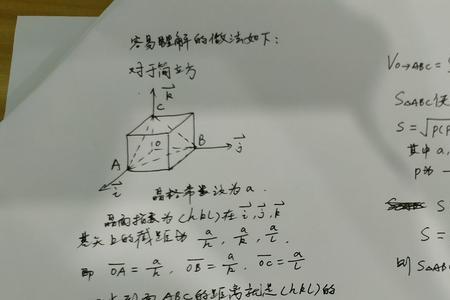 容易理解的做法如下：
对于简立方
k
C
O
B
j
A
i
晶格常数设为 a.
晶面指数为 (hkl) 在 i, j, k
基矢上的截距为 a/h, a/k, a/l.
即 OA = a/h, OB = a/k, OC = a/l
到面 ABC 的距离就是 (hkl) 的
V₀→ABC =
S△ABC 使
S = √p(p
其中 a,
p为
S
S =
则 S△AB